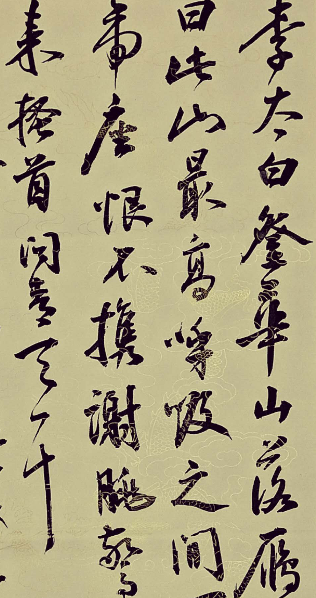 李太白登華山落雁
曰此山最高呼吸之間
帝座恨不攜謝朓驚
來搔首问青天耳